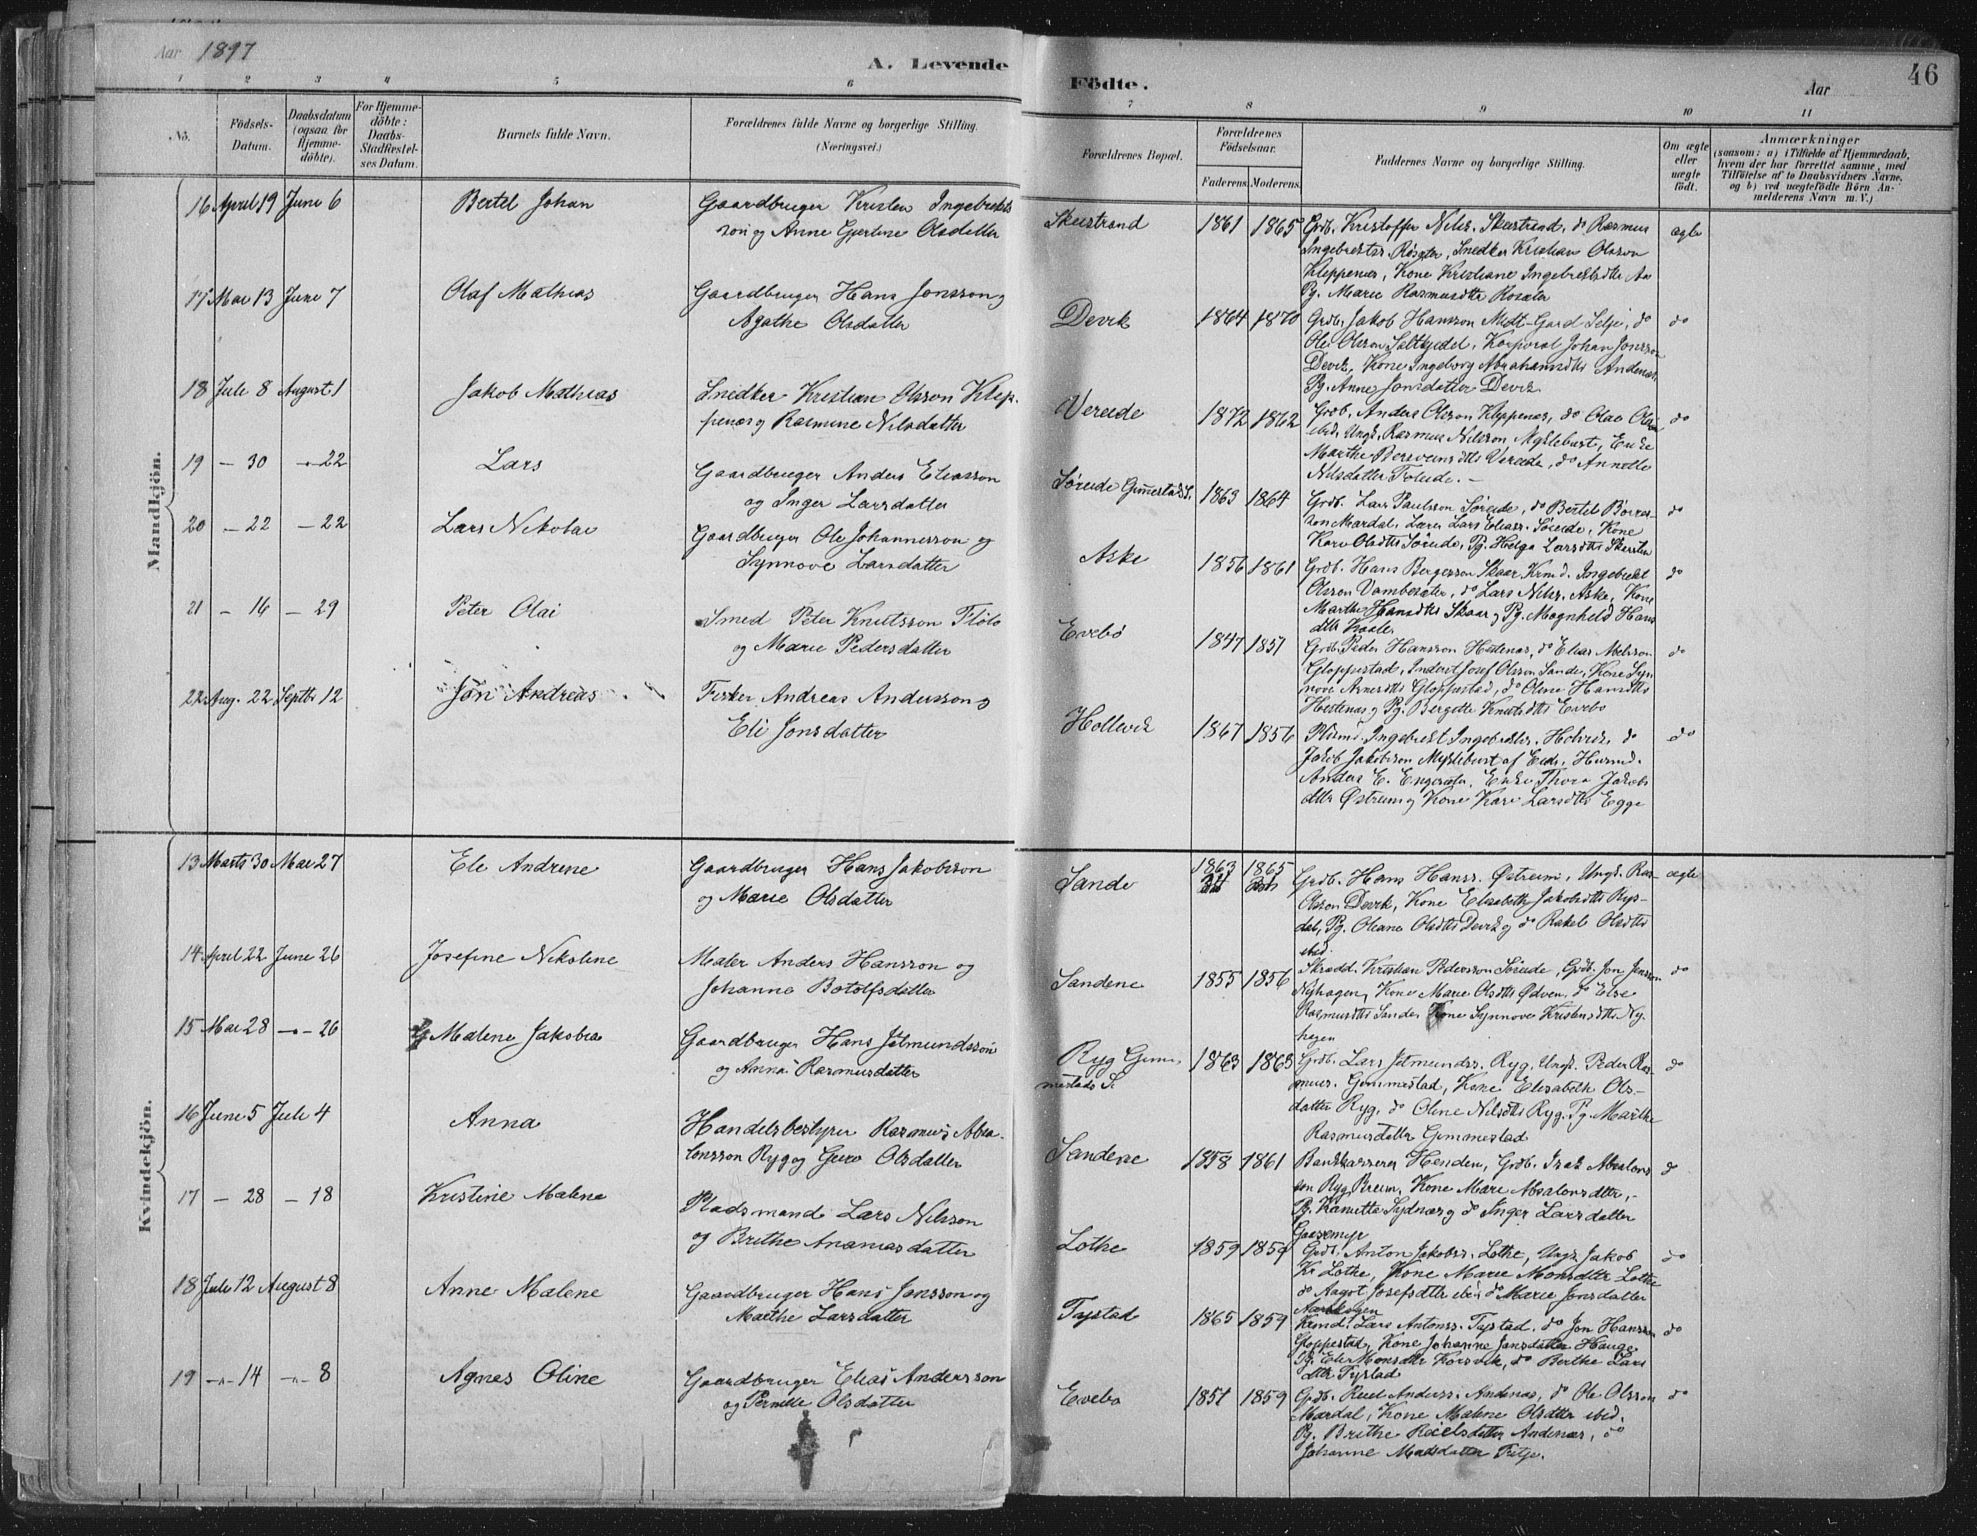 Aar 1897
A. Levende
Födte.
Aar
46
1 2 3 4 5 6 7 8 9 10 11
No.
Födsels-
Datum.
Daabsdatum
(ogsaa for
Hjemme-
döbte).
For Hjemme-
döbte:
Daabs-
Stadfæstel-
ses Datum.
Barnets fulde Navn.
Forældrenes fulde Navne og borgerlige Stilling.
(Næringsvei.)
Forældrenes Bopæl.
Forældrenes
Födselsaar.
Faderens. Moderens.
Faddernes Navne og borgerlige Stilling.
Om ægte
eller
uægte
födt.
Anmærkninger
(saasom: a) i Tilfælde af Hjemmedaab,
hvem der har forrettet samme, med
Tilföielse af to Daabsvidners Navne,
og b) ved uægtefödte Börn An-
melderens Navn m. V.)
Mandkjön.
16 April 19 June 6 Bertel Johan Gaardbruger Kristen Ingebrikts
son og Anne Gjertine Olsdatter
Skeistrand 1861 1865 Grdb. Kristoffer Nilss. Skeistrand, do Rasmus ægte
Ingebrektss. Röseter, Snedker Kristian Olsson
Kleppenes, Kone Kristiane Ingebrektsdtr
Pg. Marie Rasmusdtr
17 Mai 13 June 7 Olaf Mathias Gaardbruger Hans Jonsson og
Agathe Olsdatter
Devik 1864 1870 Grdb. Jakob Hansson Midt-Gard Selje, do do
Ole Olsson Saltkjedel, Korporal Johan Jonsson
Devik, Kone Ingeborg Abrahamsdtr Andenæs
Pg. Anne Jonsdatter Devik
18 Juli 8 August 1 Jakob Mathias Snedker Kristian Olsson Klep-
penes og Rasmine Nilsdatter
Vereide 1872 1862 Grdb. Anders Olsson Kleppenes, do Olav Olsson do
ibid, Ungk. Rasmus Nilsson Myklebust, Enke
Marthe Vereide, do Annette
Nilsdatter
19 — 30 — 22 Lars Gaardbruger Anders Eliasson
og Inger Larsdatter
Söreide Gimmestad S. 1863 1864 Grdb. Lars Paulsson Söreide, do Bertel
son Mardal, Lærer Lars Eliass. Söreide, Kone
Kari Olsdtr Söreide, Pg. Helga Larsdtr
do
20 — 22 — 22 Lars Nikolai Gaardbruger Ole Johannesson og
Synnove Larsdatter
Aske 1856 1861 Grdb. Hans Bergesson Skaar, Krmd. Ingebrekt do
Olsson Vambeseter, do Lars Nilss. Aske, Kone
Marthe Hansdtr Skaar, Pg. Magnhild Hans
dtr
21 — 16 — 29 Peter Olai Smed Peter Knutsson Flölo
og Marie Pedersdatter
Evebö 1847 1851 Grdb. Peder Hansson Hestenæs, do Elias do
Gloppestad, Josef Olsson Sande, Kone Syn
nove Gloppestad, do Oline Hansdtr
Hestenæs og Pg. Bergitte Knutsdtr Evebö
22 Aug. 22 Septbr 12 Jon Andreas Fisker Andreas Andersson og
Eli Jonsdatter
Hollevik 1867 1856 Plsmd. Ingebrekt Ingebrektss. Holvik, do do
Jakob Jakobsson Myklebust af Eid, Husmd.
Anders E. Engeseter, Enke Thora Jakobs
dtr Östreim og Kone Kari Larsdtr Egge
Kvindekjön.
13 Marts 30 Mai 27 Eli Andrine Gaardbruger Hans Jakobsson
og Marie Olsdatter
Sande 1863 1865 Grdb. Hans Hanss. Östreim, Ungk. Ras- ægte
Olsson Devik, Kone Elisabeth Jakobsdtr Ryss-
dal, Pg. Oleane Olsdtr Devik og do Rakel Olsdtr
ibid.
14 April 22 June 26 Josefine Nikoline Maler Anders Hansson og
Johanne Botolfsdatter
Sandene 1855 1856 Skrædd. Kristian Pedersson Söreide, Grdb. Jon Jensson do
Nyhagen, Kone Marie Olsdtr Ödven, do Else
Rasmusdtr Sande, Kone Synnove Kristensdtr Ny-
hagen
15 Mai 28 — 26 Malene Jakobia Gaardbruger Hans Jetmundsson
og Anna Rasmusdatter
Ryg Gim-
mestads S. 1863 1863 Grdb. Lars Jetmundss. Ryg, Ungk. Peder Ras- do
muss. Gimmestad, Kone Elisabeth Ols-
datter Ryg, do Oline Nilsdtr Ryg, Pg. Marthe
Rasmusdatter Gimmestad
16 June 5 Juli 4 Anna Handelsbestyrer Rasmus Absa-
lonsson Ryg og Guro Olsdatter
Sandene 1858 1861 Bankkasserer Henden, Grdb. Isak Absalons do
son Ryg, Breim, Kone Mari Absalonsdtr,
Pg. Kanutte Sydnæs og do Inger Larsdatter
Gaasemyr
17 — 28 — 18 Kristine Malene Pladsmand Lars Nilsson
og Brithe Ananiasdatter
Lothe 1859 1859 Grdb. Anton Jakobss. Lothe, Ungk. Jakob do
Kr. Lothe, Kone Marie Monsdtr Lothe
do Aagot Josefsdtr ib. do Marie Jonsdatter
18 Juli 12 August 8 Anne Malene Gaardbruger Hans Jonsson og
Marthe Larsdatter
Tystad 1865 1859 Krmd. Lars Antonss. Tystad, do Jon Hansson do
Gloppestad, Kone Johanne Jonsdatter Hauge
Pg. Eli Monsdtr Korsvik, do Berthe Lars
dtr Tystad
19 — 14 — 8 Agnes Oline Gaardbruger Elias Andersson
og Pernille Olsdatter
Evebö 1851 1859 Grdb. Anderss. Andenæs, do Ole Olsson do
Mardal, Kone Malene Olsdtr ibid.
Pg. Brithe Andenæs, do
Johanne Madsdatter